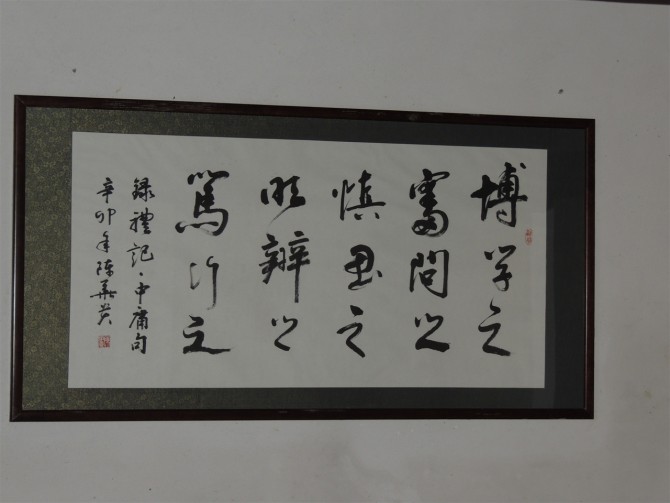 博学之
審問之
慎思之
明辨之
篤行之
録禮記·中庸句
辛卯年陈華贵